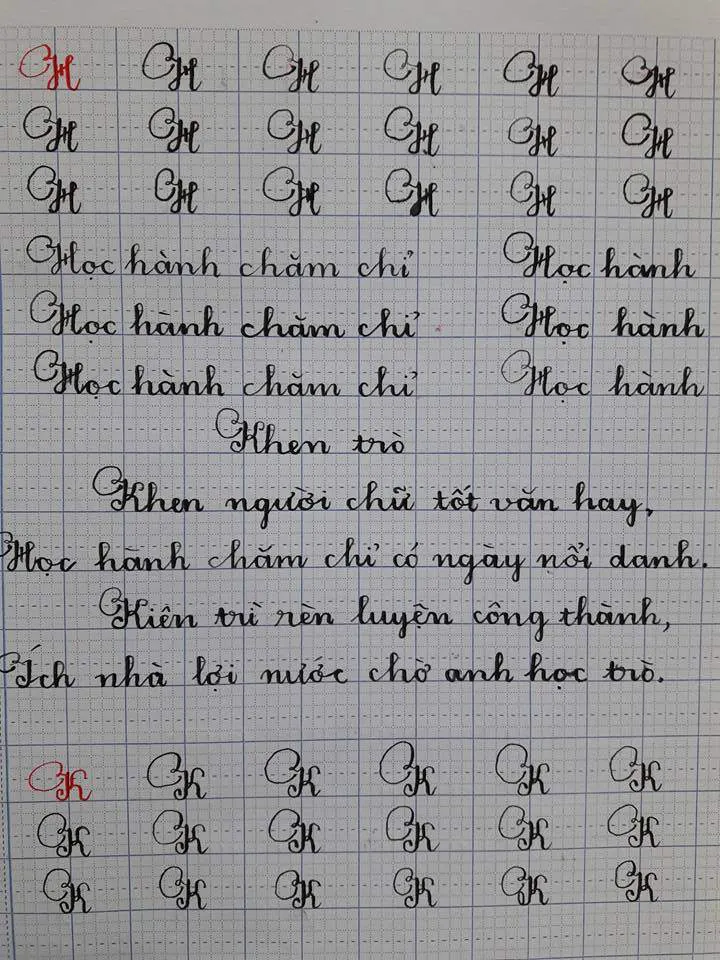 H H H H H H
H H H H H H
H H H H H H
Học hành chăm chỉ Học hành
Học hành chăm chỉ Học hành
Học hành chăm chỉ Học hành
Khen trò
Khen người chữ tốt văn hay,
Học hành chăm chỉ có ngày nổi danh.
Kiên trì rèn luyện công thành,
Ích nhà lợi nước chờ anh học trò.
K K K K K K
K K K K K K
K K K K K K